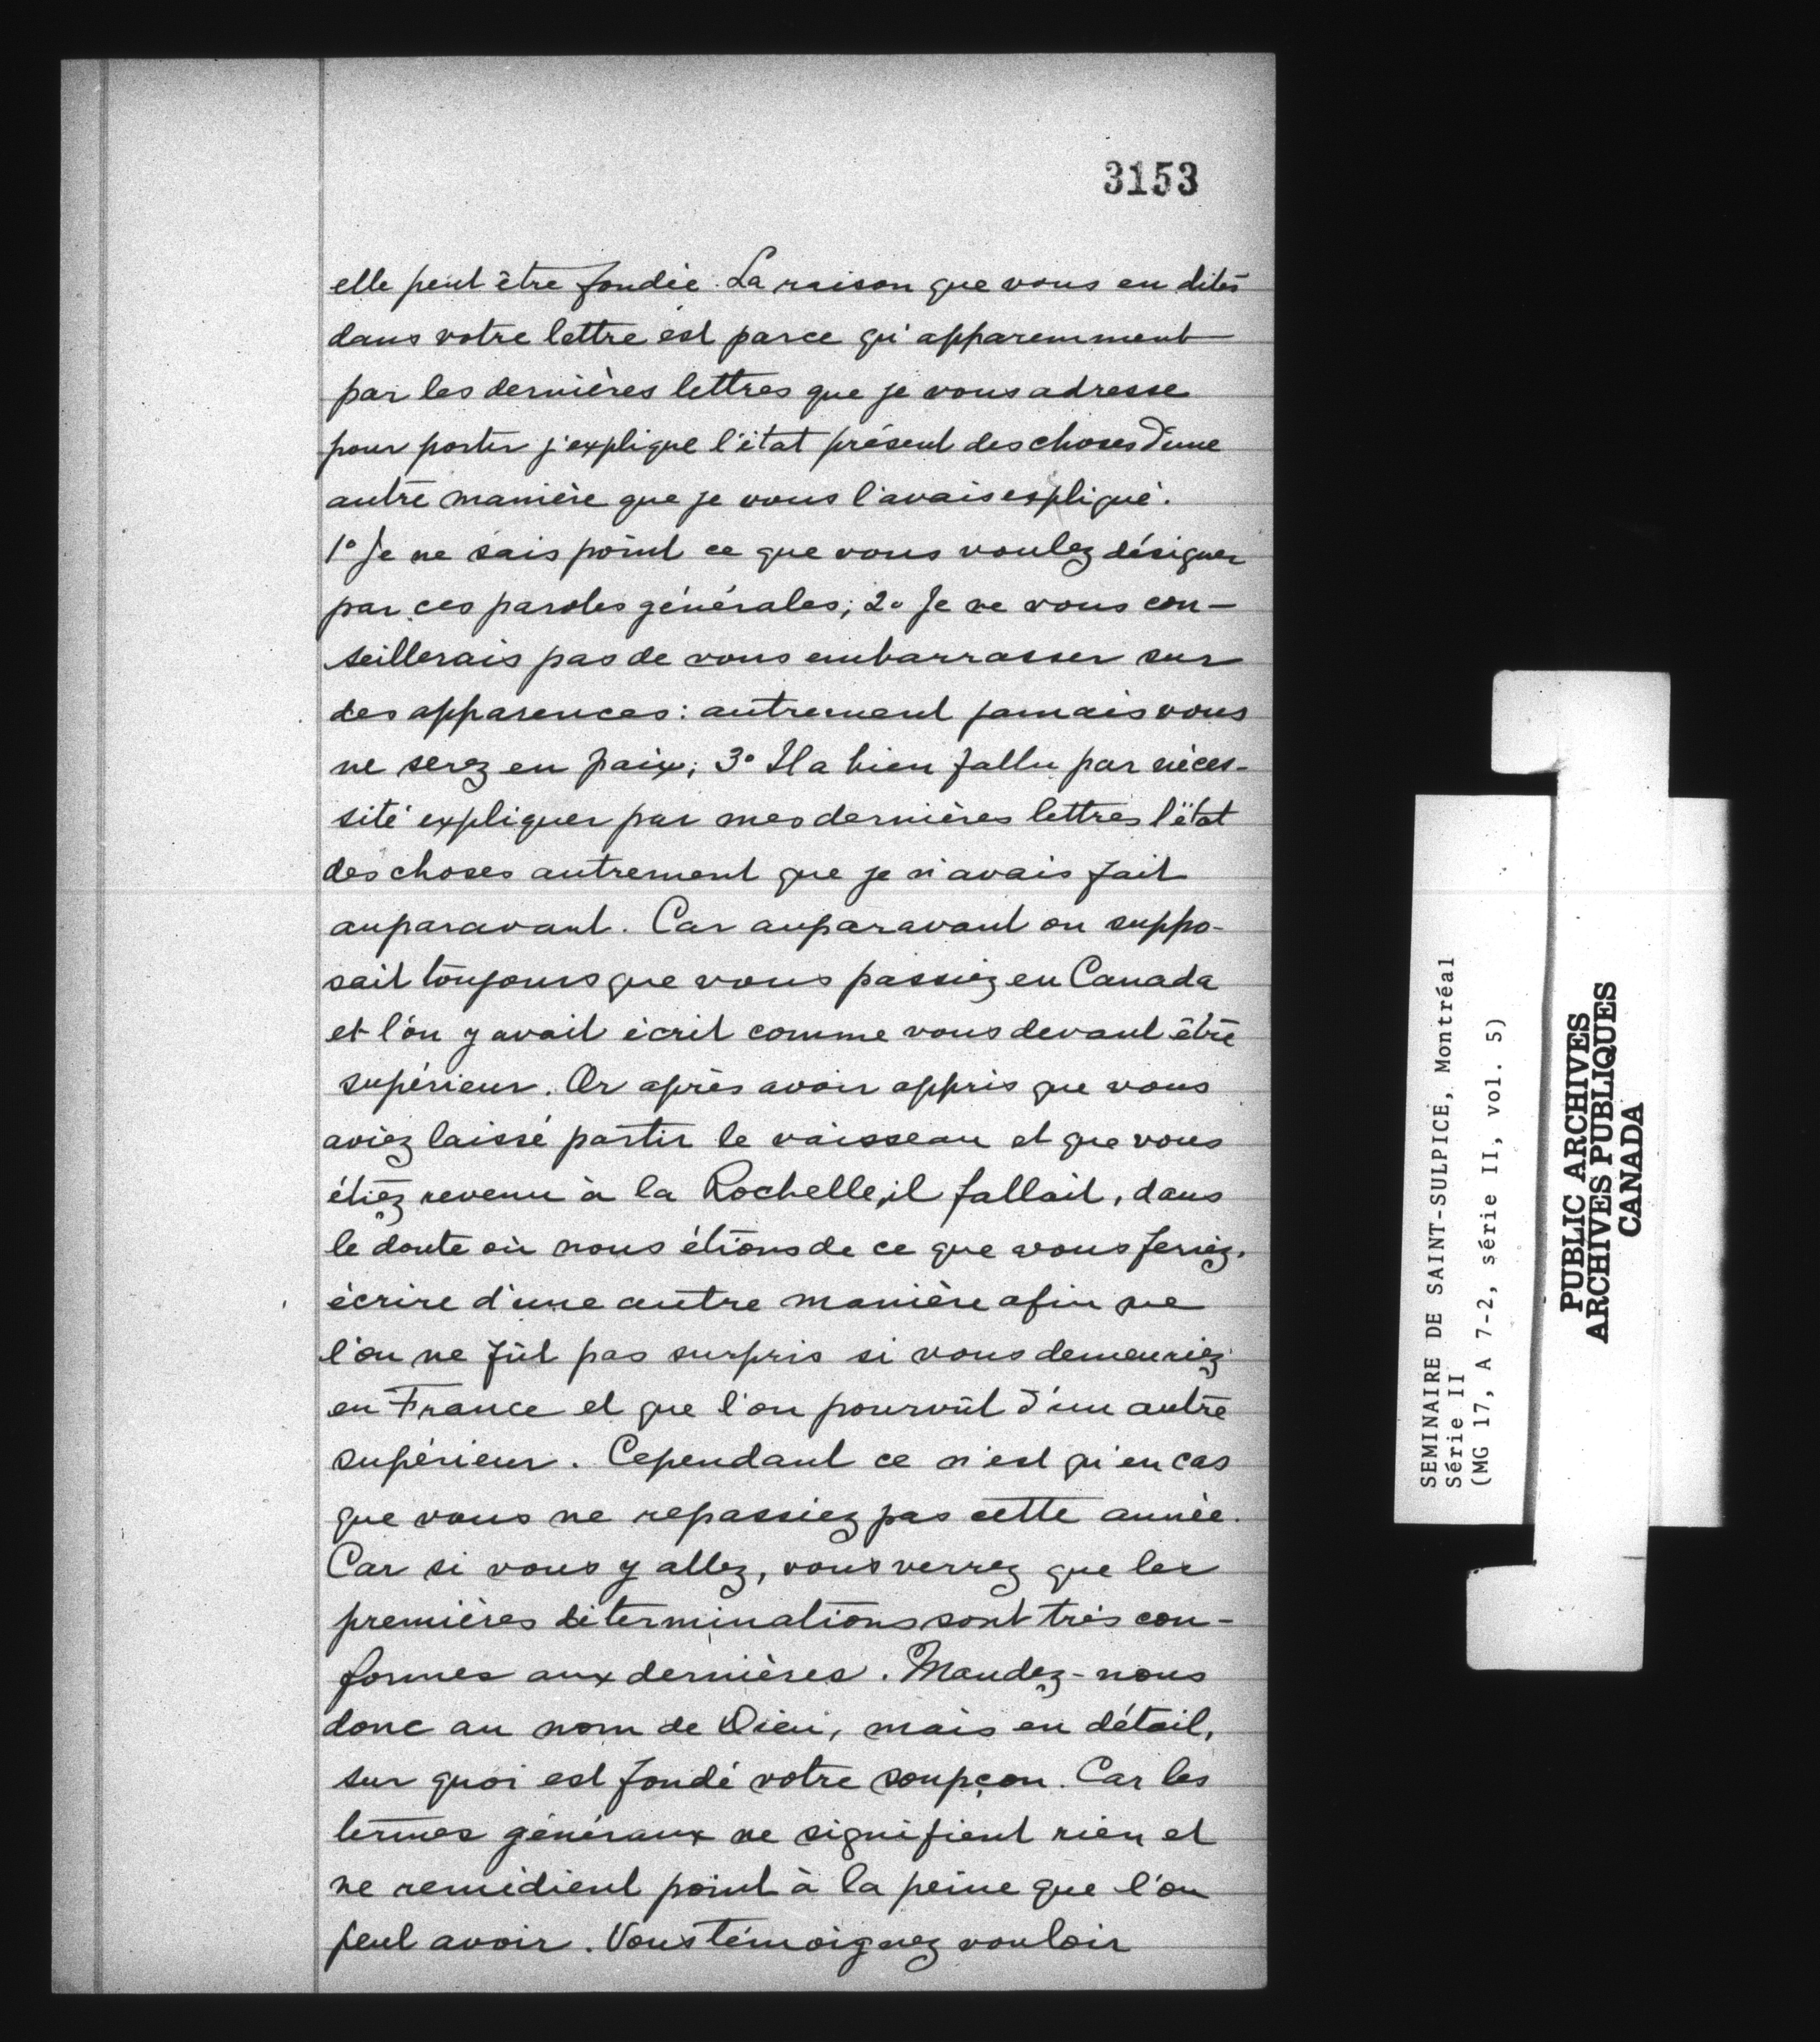 3153
elle peut être fondée. La raison que vous en dites
dans votre lettre est parce qu'apparemment
par les dernières lettres que je vous adresse
pour porter j'explique l'état présent des choses d'une
autre manière que je vous l'avais expliqué.
1° Je ne sais point ce que vous voulez désigner
par ces paroles générales; 2° Je ne vous con-
seillerais pas de vous embarrasser sur
des apparences: autrement jamais vous
ne serez en paix; 3° Il a bien fallu par néces-
sité expliquer par mes dernières lettres l'état
des choses autrement que je n'avais fait
auparavant. Car auparavant on suppo-
sait toujours que vous passiez en Canada
et l'on y avait écrit comme vous devant être
supérieur. Or après avoir appris que vous
aviez laissé partir le vaisseau et que vous
étiez revenu à la Rochelle, il fallait, dans
le doute où nous étions de ce que vous feriez,
écrire d'une autre manière afin que
l'on ne fût pas surpris si vous demeuriez
en France et que l'on pourvût d'un autre
supérieur. Cependant ce n'est qu'en cas
que vous ne repassiez pas cette année.
Car si vous y allez, vous verrez que les
premières déterminations sont très con-
formes aux dernières. Mandez-nous
donc au nom de Dieu, mais en détail,
sur quoi est fondé votre soupçon. Car les
termes généraux ne signifient rien et
ne remédient point à la peine que l'on
peut avoir. Vous témoignez vouloir
SEMINAIRE DE SAINT-SULPICE, Montréal
Série II
(MG 17, A 7-2, série II, vol. 5)
PUBLIC ARCHIVES
ARCHIVES PUBLIQUES
CANADA